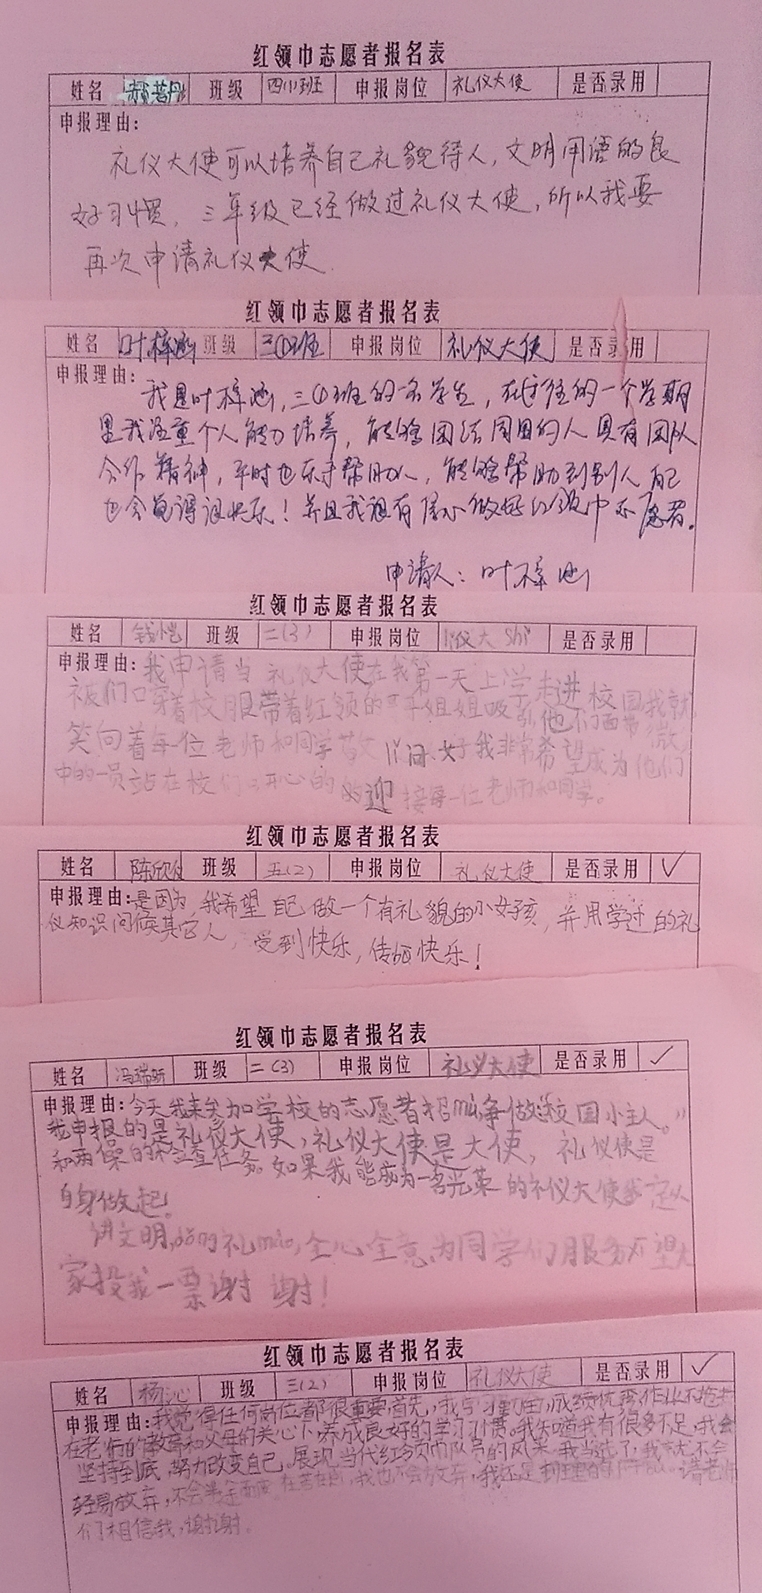 红领巾志愿者报名表
姓名 郝若丹 班级 四(1)班 申报岗位 礼仪大使 是否录用
申报理由:
礼仪大使可以培养自己礼貌待人,文明用语的良
好习惯,三年级已经做过礼仪大使,所以我要
再次申请礼仪大使.
红领巾志愿者报名表
姓名 叶梓涵 班级 三(1)班 申报岗位 礼仪大使 是否录用
申报理由:我是叶梓涵,三(1)班的一名学生,在过往的一个学期
里我注重个人能力培养,能够团结周围的人具有团队
合作精神,平时也乐于帮助人,能够帮助到别人自己
也会觉得很快乐!并且我很有信心做好红领巾志愿者.
申请人:叶梓涵
红领巾志愿者报名表
姓名 钱恺 班级 二(3) 申报岗位 lǐ仪大shǐ 是否录用
申报理由:我申请当礼仪大使在我第一天上学走进校园我就
被们口穿着校服带着红领的哥哥姐姐吸引他们面带微
笑向着每一位老师和同学 问好我非常希望成为他们
中的一员站在校们口开心的 迎接每一位老师和同学。
红领巾志愿者报名表
姓名 陈欣仪 班级 五(2) 申报岗位 礼仪大使 是否录用 ✓
申报理由:是因为我希望自己做一个有礼貌的小女孩,并用学过的礼
仪知识问候其它人,受到快乐,传递快乐!
红领巾志愿者报名表
姓名 冯瑞妍 班级 二(3) 申报岗位 礼仪大使 是否录用 ✓
申报理由:今天我来参加学校的志愿者招mù,争做校园小主人。
我申报的是礼仪大使,礼仪大使是大使,礼仪使是
和两操的检查任务。如果我能成为一名光荣的礼仪大使我
自身做起。
讲文明,dǒng礼mào,全心全意为同学们服务 望大
家投我一票谢谢!
红领巾志愿者报名表
姓名 杨沁 班级 三(2) 申报岗位 礼仪大使 是否录用 ✓
申报理由:我觉得任何岗位都很重要首先,我 成绩优秀作业不拖拉
在老师的教育和父母的关心下,养成良好的学习习惯。我知道我有很多不足,我会
坚持到底,努力改变自己。展现当代红领巾队员的风采。我当选了,我就不会
轻易放弃,不会半途而废。 我也不会放弃,我还是 请老师
们相信我,谢谢.